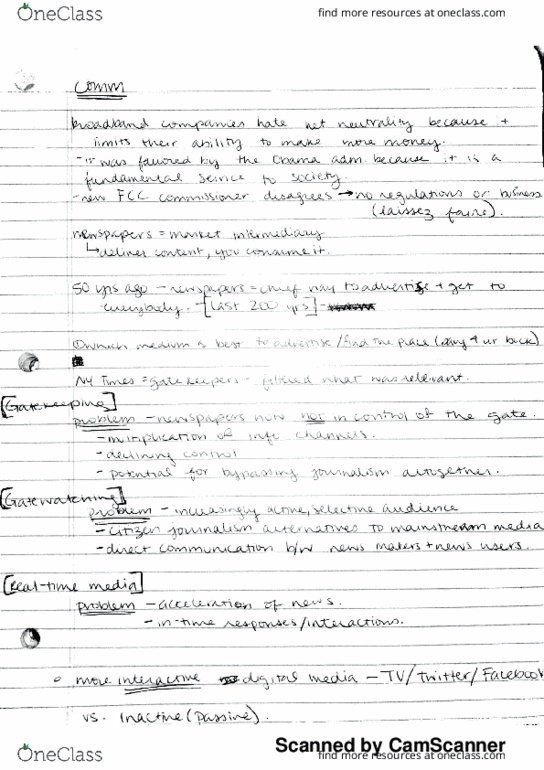 OneClass
find more resources at oneclass.com
COMM
broadband companies hate net neutrality because it
limits their ability to make more money.
- it was favored by the Obama adm. because it is a
fundamental service to society.
- new FCC commissioner disagrees → no regulations or business
(laissez faire).
newspapers = market intermediary
↳ delivers content, you consume it.
50 yrs ago - newspapers = chief way to advertise + get to
everybody. - [last 200 yrs] -
which medium is best to advertise/find the place (bang 4 ur buck)
NY Times = gatekeepers - filtered what was relevant.
[Gatekeeping]
problem - newspapers now not in control of the gate.
- multiplication of info channels.
- declining control
- potential for bypassing journalism altogether.
[Gatewatching]
problem - increasingly active, selective audience
- citizen journalism alternatives to mainstream media
- direct communication b/w news makers + news users.
[Real-time media]
problem - acceleration of news.
- in-time responses/interactions.
° more interactive digital media - TV/Twitter/Facebook
vs. inactive (passive).
Scanned by CamScanner
OneClass
find more resources at oneclass.com